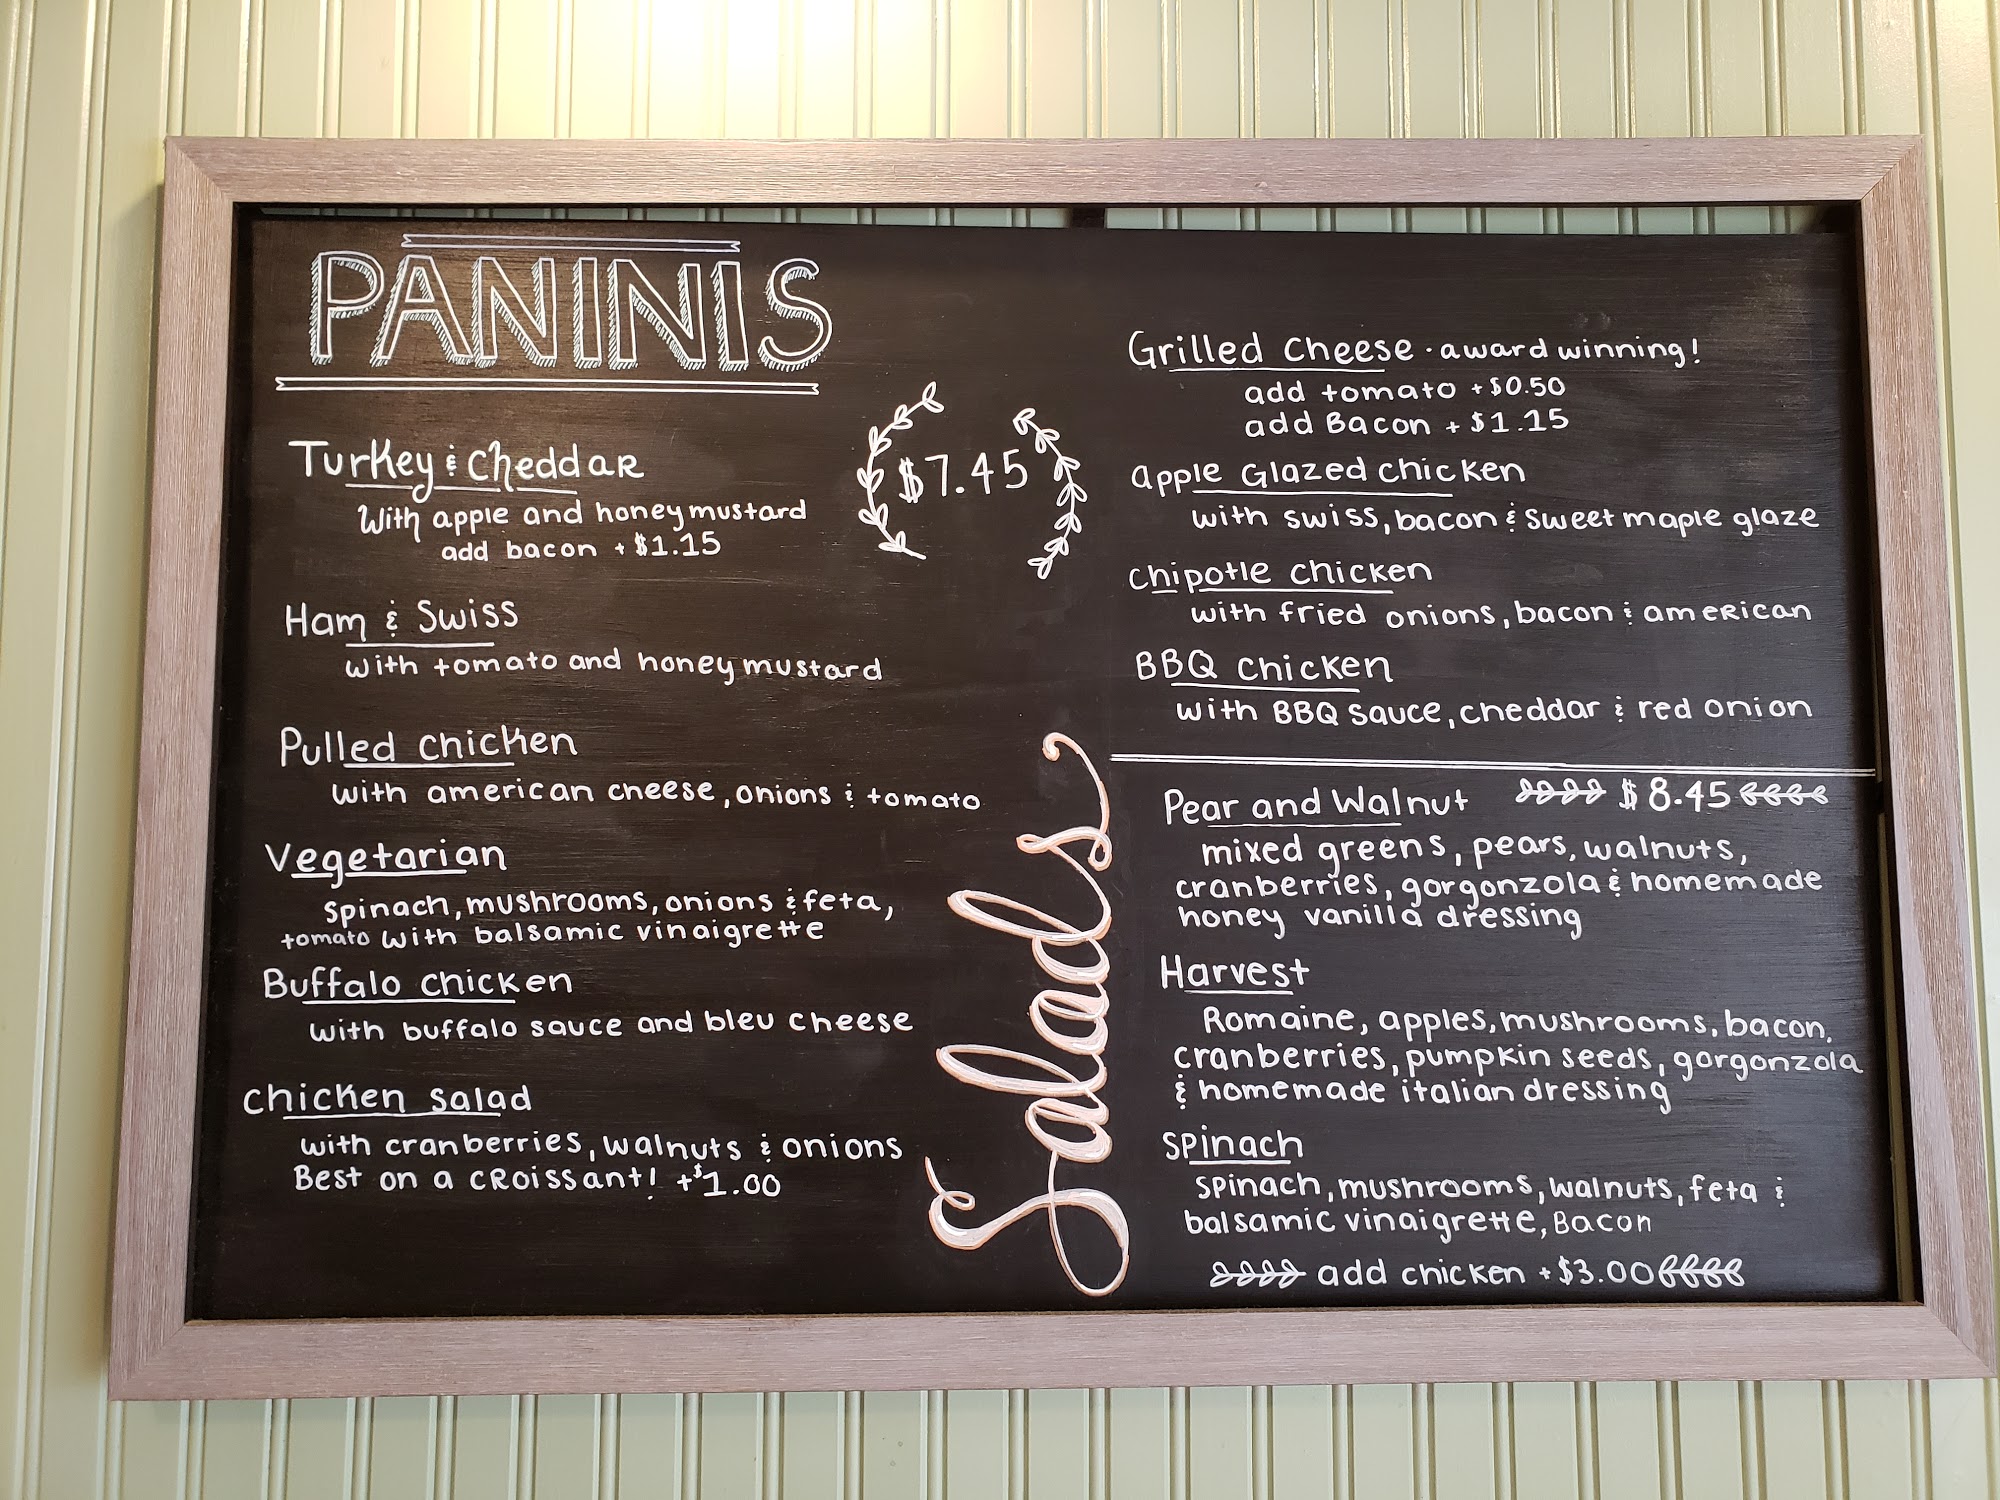 PANINIS
$7.45
Turkey & Cheddar
With apple and honey mustard
add bacon + $1.15
Ham & Swiss
with tomato and honey mustard
Pulled chicken
with american cheese, onions & tomato
Vegetarian
spinach, mushrooms, onions & feta,
tomato with balsamic vinaigrette
Buffalo chicken
with buffalo sauce and bleu cheese
chicken salad
with cranberries, walnuts & onions
Best on a croissant! +$1.00
Grilled cheese · award winning!
add tomato +$0.50
add Bacon + $1.15
apple Glazed chicken
with swiss, bacon & sweet maple glaze
chipotle chicken
with fried onions, bacon & american
BBQ chicken
with BBQ sauce, cheddar & red onion
Salads
Pear and Walnut $8.45
mixed greens, pears, walnuts,
cranberries, gorgonzola & homemade
honey vanilla dressing
Harvest
Romaine, apples, mushrooms, bacon,
cranberries, pumpkin seeds, gorgonzola
& homemade italian dressing
spinach
spinach, mushrooms, walnuts, feta &
balsamic vinaigrette, Bacon
add chicken +$3.00